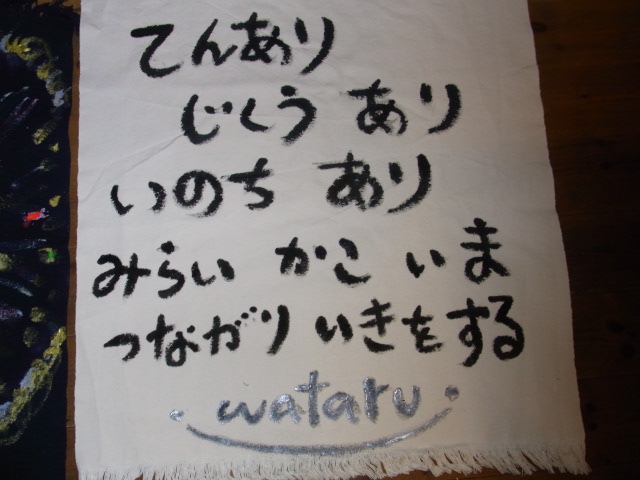 てんあり
じくう あり
いのち あり
みらい かこ いま
つながり いきをする
wataru